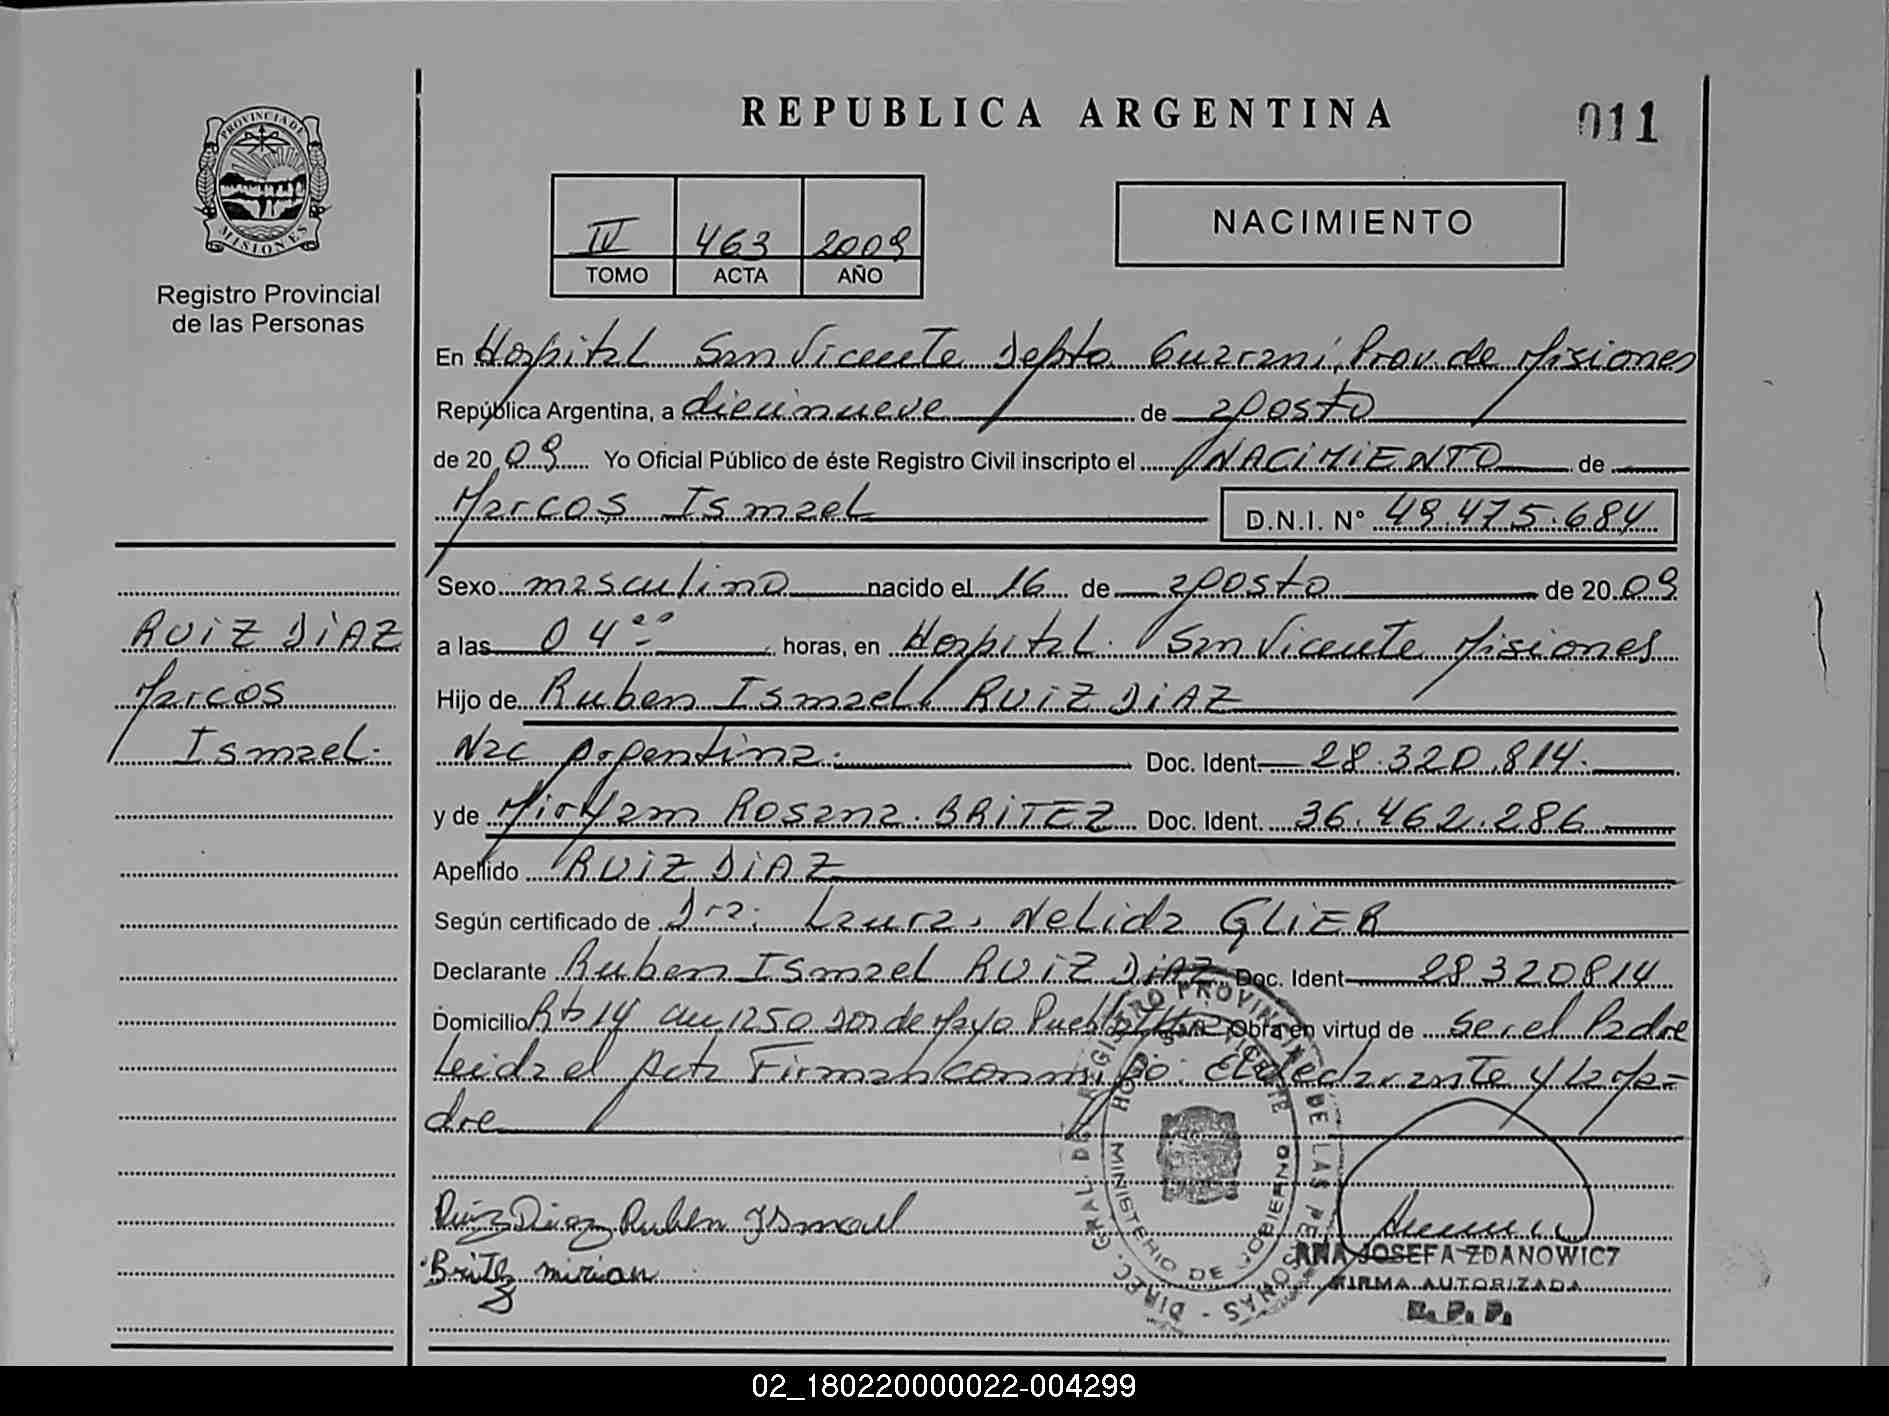 REPUBLICA ARGENTINA
011
PROVINCIA DE
MISIONES
Registro Provincial
de las Personas
IV 463 2009
TOMO ACTA AÑO
NACIMIENTO
En Hospital San Vicente Depto Guarani, Prov. de Misiones
República Argentina, a diecinueve de agosto
de 20 09 Yo Oficial Público de éste Registro Civil inscripto el NACIMIENTO de
Marcos Ismael D.N.I. N° 49.475.684
Sexo masculino nacido el 16 de agosto de 20 09
a las 04 00 horas, en Hospital San Vicente Misiones
Hijo de Ruben Ismael RUIZ DIAZ
Nac Argentina. Doc. Ident. 28.320.814.
y de Miryam Rosana BRITEZ Doc. Ident. 36.462.286
Apellido RUIZ DIAZ
Según certificado de Dra. Laura Nelida GLIER
Declarante Ruben Ismael RUIZ DIAZ Doc. Ident 28320814
Domicilio Rta 14 1250 dos de Mayo Obra en virtud de ser el Padre
Leida el Acta Firman conmigo: El declarante y la Ma-
dre
RUIZ DIAZ
Marcos
Ismael.
Ruiz Diaz Ruben Ismael
Britez mirian
DIREC. GRAL. DEL REGISTRO PROVINCIAL DE LAS PERSONAS
HOSP. SAN VICENTE
MINISTERIO DE GOBIERNO
ANA JOSEFA ZDANOWICZ
FIRMA AUTORIZADA
R. P. P.
02_180220000022-004299